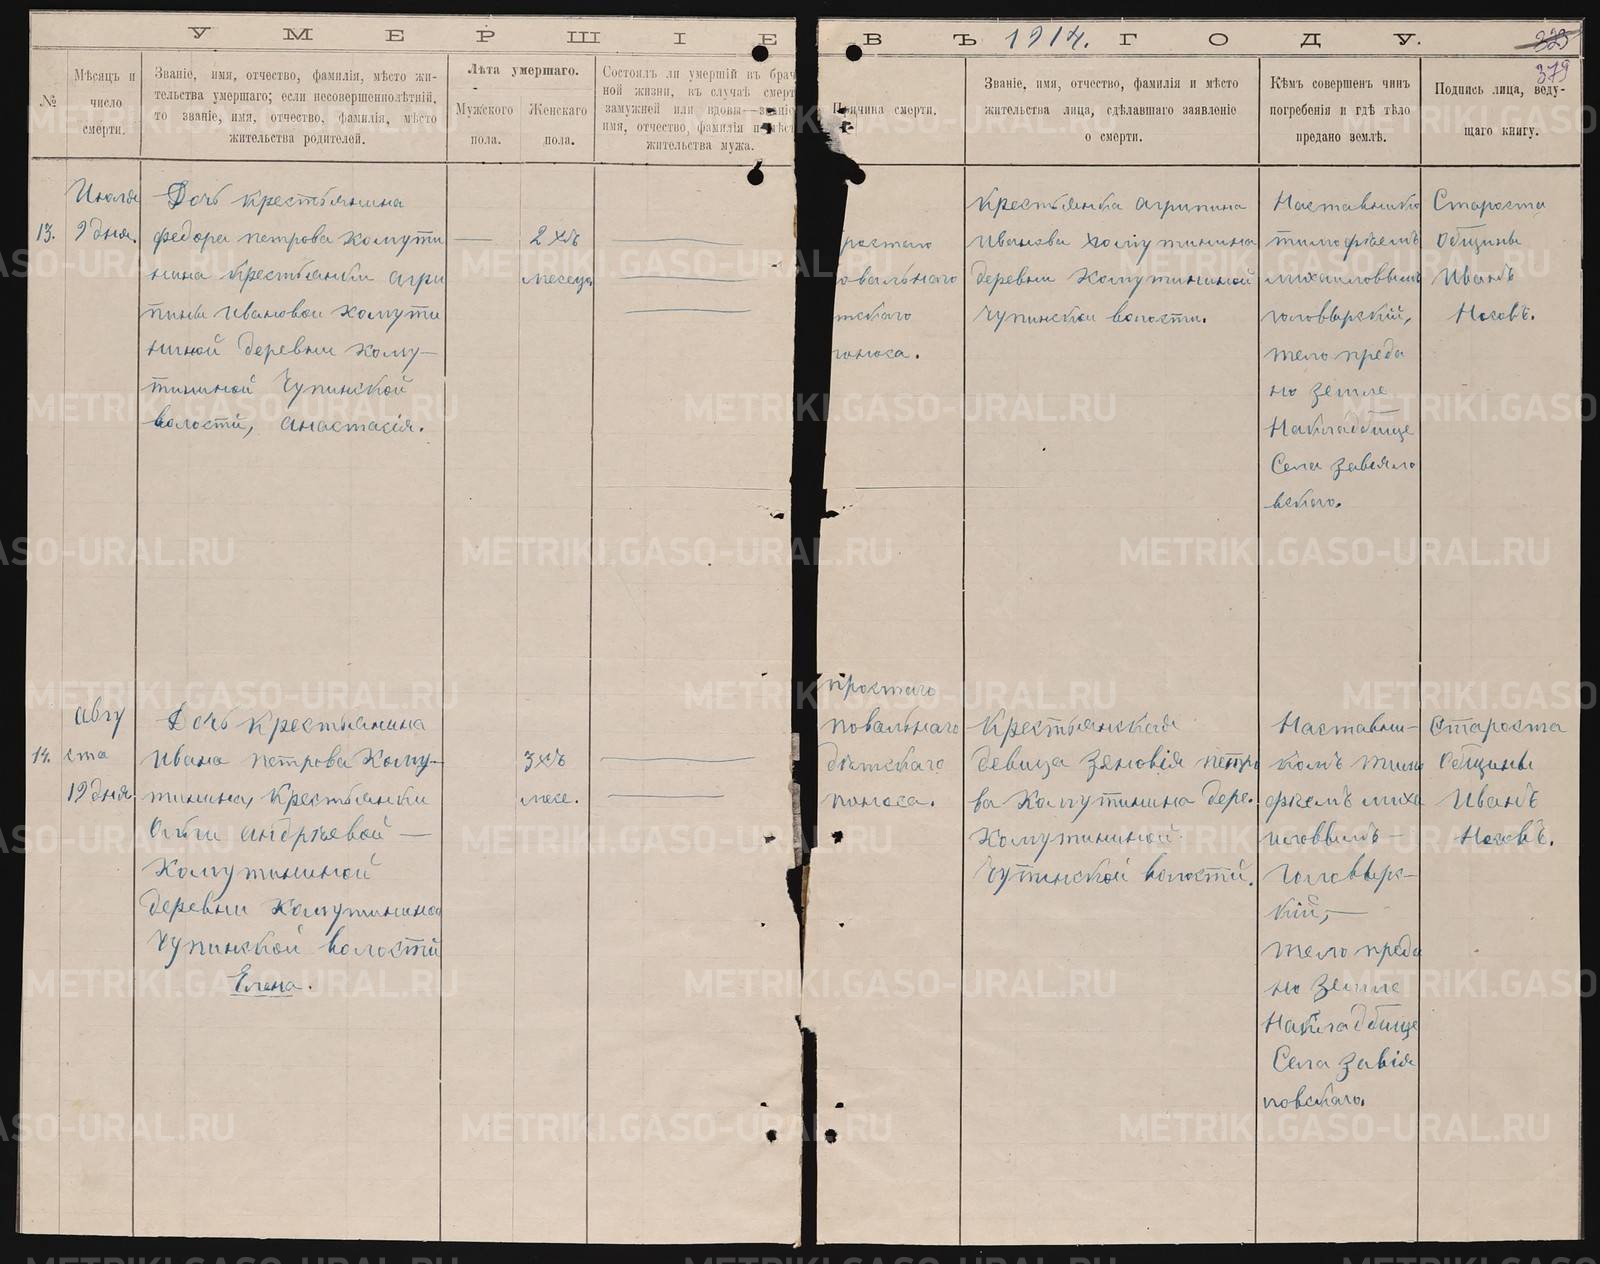 УМЕРШІЕ ВЪ 1914. ГОДУ.
379
№
Мѣсяцъ и
число
смерти.
Званіе, имя, отчество, фамилія, мѣсто жи-
тельства умершаго; если несовершеннолѣтній,
то званіе, имя, отчество, фамилія, мѣсто
жительства родителей.
Лѣта умершаго.
Мужского
пола.
Женскаго
пола.
Состоялъ ли умершій въ брач
ной жизни, въ случаѣ смерт
замужней или вдовы—званіе
имя, отчество, фамилія и мѣст
жительства мужа.
Причина смерти.
Званіе, имя, отчество, фамилія и мѣсто
жительства лица, сдѣлавшаго заявленіе
о смерти.
Кѣмъ совершенъ чинъ
погребенія и гдѣ тѣло
предано землѣ.
Подпись лица, веду-
щаго книгу.
13.
9 дня.
Дочь крестьянина
федора петрова хомути
нина крестьянки агри
пины ивановои хомути
нинои деревни хому—
тининой Чупинской
волостй, анастасія.
2 хъ
месеца
ростаго
овальнаго
тскаго
поноса.
Крестьянка агрипина
Иванова хомутинина
деревни Хомутининой
Чупинскои волости.
Наставнико
тимофѣемъ
михаиловвымъ
головырскій,
тело преда
но земле
Накладбище
Села завяло
вскаго.
Староста
Общины
Иванъ
Носовъ.
14.
авгу
ста
19 дня
Дочь Крестьянина
Ивана петрова Хому—
тинина, Крестьянки
Ольги андрѣевой —
Хомутининой
деревни Хомутинино
Чупинской волостй
Елена.
3 хъ
месе.
простаго
повальнаго
дѣтскаго
поноса.
Крестьянская
девица зяновія петро
ва Хомутинина дере.
Хомутининой
Чупинской волостй.
Наставни—
комъ тимо
фѣемъ миха
иловвымъ —
Головырс—
кій, —
тело преда
но земле
Накладбище
Села завія
ловскаго.
Староста
Общины
Иванъ
Носовъ.
METRIKI.GASO-URAL.RU